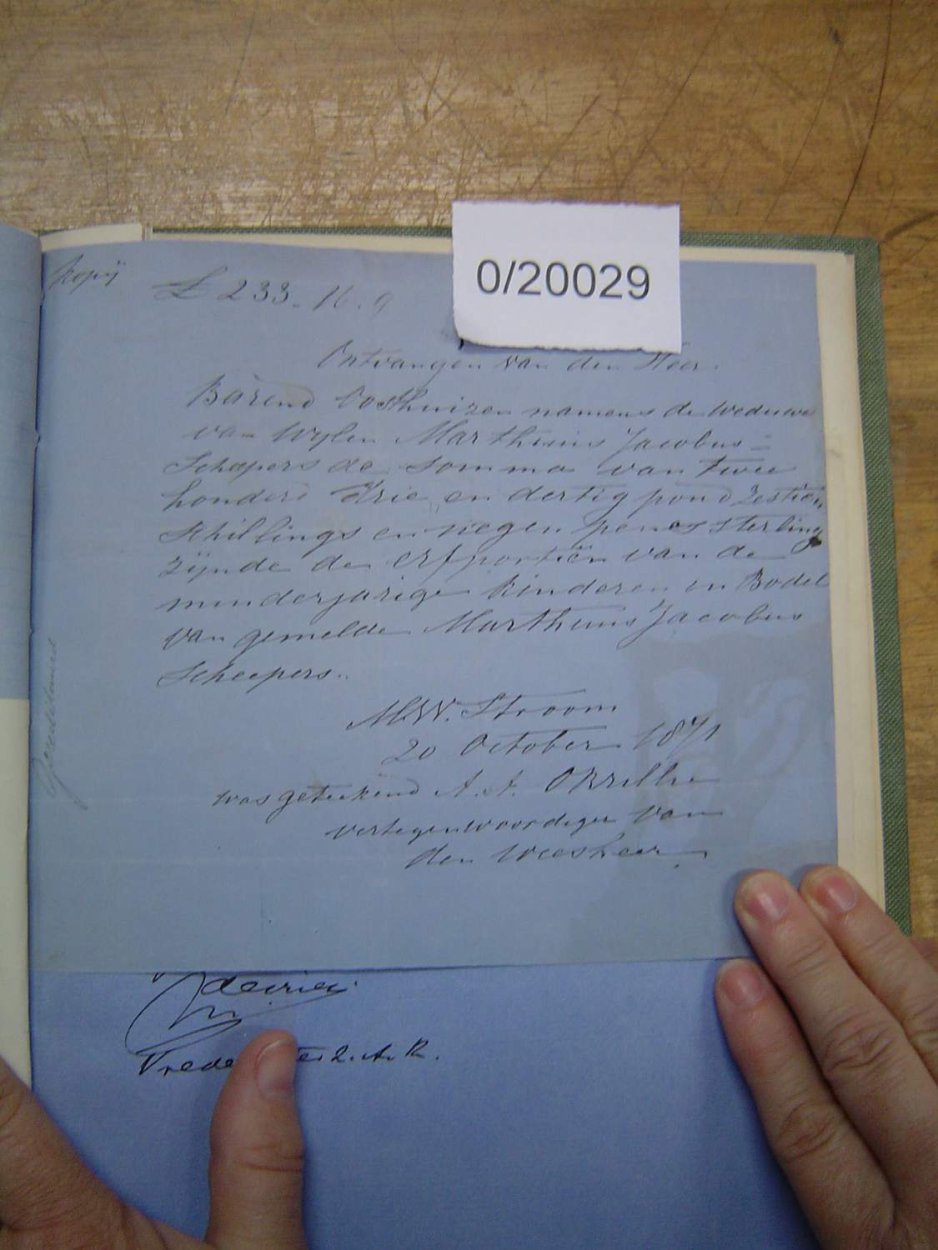 0/20029
kopij
£ 233.16.9
Ontvangen van den Heer
Barend Oosthuizen namens de Weduwe
van Wylen Marthinus Jacobus
Scheepers de Somma van twee
honderd drie en dertig pond Zestien
Schillings en negen pence sterling
zijnde de erfportien van de
minderjarige kinderen in Boedel
van gemelde Marthinus Jacobus
Scheepers.
M.W. Stroom
20 October 1871
was geteekend A. J.
vertegenwoordiger van
den Weesheer